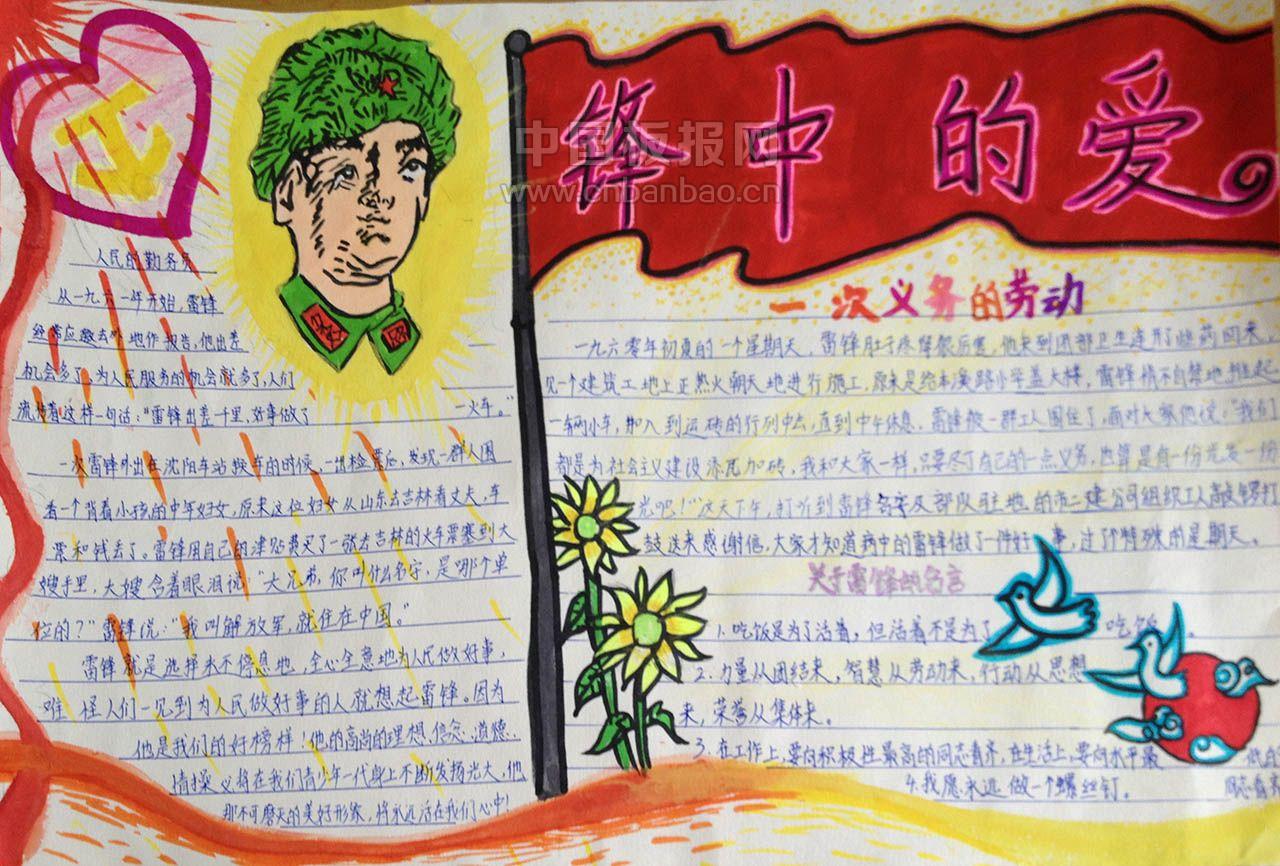 锋中的爱。
中国板报网
www.chbanbao.cn
人民的勤务员
从一九六一年开始，雷锋
经常应邀去外地作报告，他出差
机会多了，为人民服务的机会就多了，人们
流传着这样一句话：“雷锋出差千里，好事做了一火车。”
一次雷锋外出在沈阳车站换车的时候，一出检票口，发现一群人围
着一个背着小孩的中年妇女，原来这位妇女从山东去吉林看丈夫，车
票和钱丢了。雷锋用自己的津贴费买了一张去吉林的火车票塞到大
嫂手里，大嫂含着眼泪说：“大兄弟，你叫什么名字，是哪个单
位的？”雷锋说：“我叫解放军，就住在中国。”
雷锋就是这样永不停息地，全心全意地为人民做好事，
难怪人们一见到为人民做好事的人就想起雷锋。因为
他是我们的好榜样！他的高尚的理想、信念、道德、
情操义将在我们青少年一代身上不断发扬光大，他
那不可磨灭的美好形象，将永远活在我们心中！
一次义务的劳动
一九六零年初夏的一个星期天，雷锋肚子疼得很厉害，他来到团部卫生连开了些药回来，
见一个建筑工地上正热火朝天地进行施工，原来是给本溪路小学盖大楼，雷锋情不自禁地推起
一辆小车，加入到运砖的行列中去，直到中午休息，雷锋被一群工人围住了，面对大家他说：“我们
都是为社会主义建设添瓦加砖，我和大家一样，只要尽了自己的一点义务，也算是有一份光发一份
光吧！”这天下午，打听到雷锋名字及部队驻地的市二建公司组织工人敲锣打
鼓送来感谢信，大家才知道病中的雷锋做了一件好事，过了个特殊的星期天。
关于雷锋的名言
1.吃饭是为了活着，但活着不是为了吃饭。
2.力量从团结来，智慧从劳动来，行动从思想
来，荣誉从集体来。
3.在工作上，要向积极性最高的同志看齐，在生活上，要向水平最低的
同志看齐
4.我愿永远做一个螺丝钉。